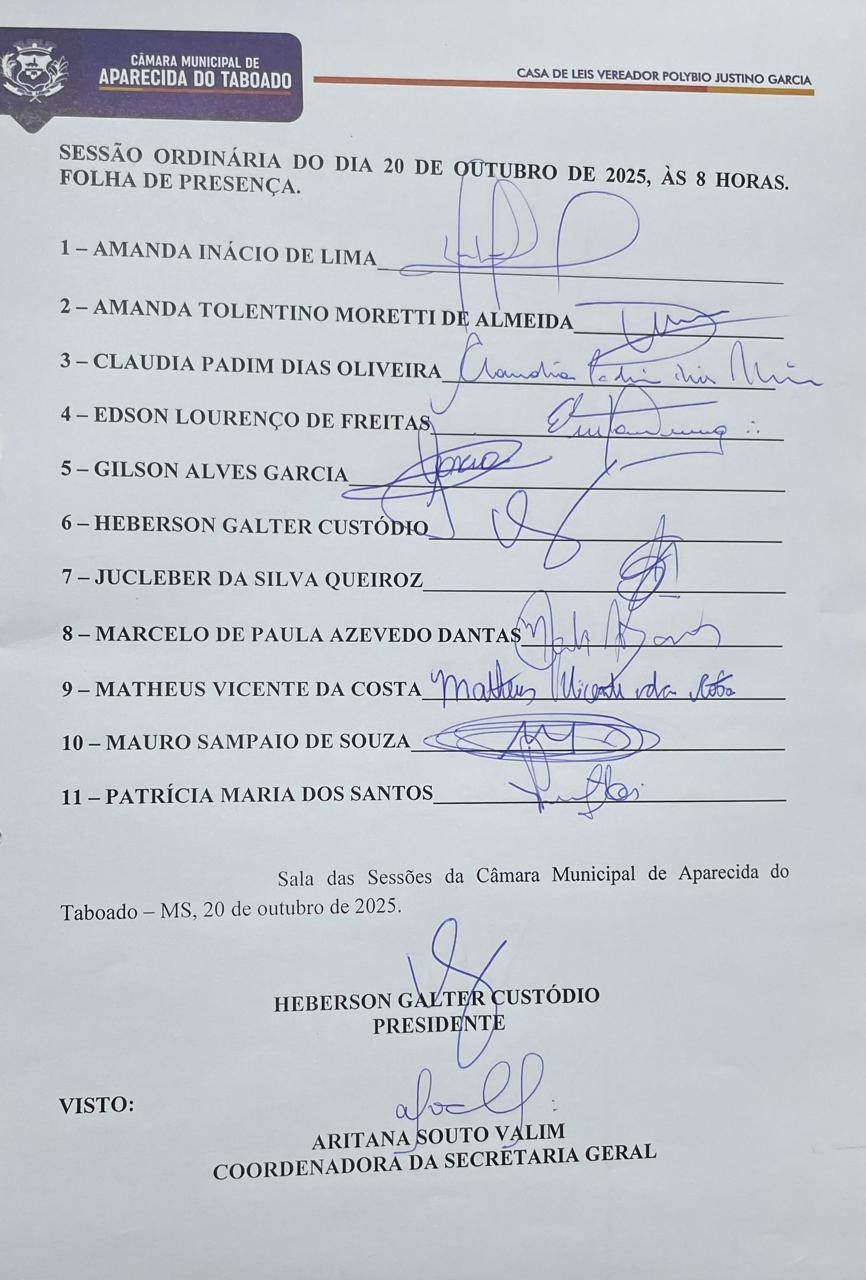 CÂMARA MUNICIPAL DE
APARECIDA DO TABOADO
CASA DE LEIS VEREADOR POLYBIO JUSTINO GARCIA
SESSÃO ORDINÁRIA DO DIA 20 DE OUTUBRO DE 2025, ÀS 8 HORAS.
FOLHA DE PRESENÇA.
1 – AMANDA INÁCIO DE LIMA
2 – AMANDA TOLENTINO MORETTI DE ALMEIDA
3 – CLAUDIA PADIM DIAS OLIVEIRA Claudia Padim Dias
4 – EDSON LOURENÇO DE FREITAS
5 – GILSON ALVES GARCIA Garcia
6 – HEBERSON GALTER CUSTÓDIO
7 – JUCLEBER DA SILVA QUEIROZ
8 – MARCELO DE PAULA AZEVEDO DANTAS
9 – MATHEUS VICENTE DA COSTA Matheus Vicente da Costa
10 – MAURO SAMPAIO DE SOUZA
11 – PATRÍCIA MARIA DOS SANTOS
Sala das Sessões da Câmara Municipal de Aparecida do
Taboado – MS, 20 de outubro de 2025.
HEBERSON GALTER CUSTÓDIO
PRESIDENTE
VISTO:
ARITANA SOUTO VALIM
COORDENADORA DA SECRETARIA GERAL